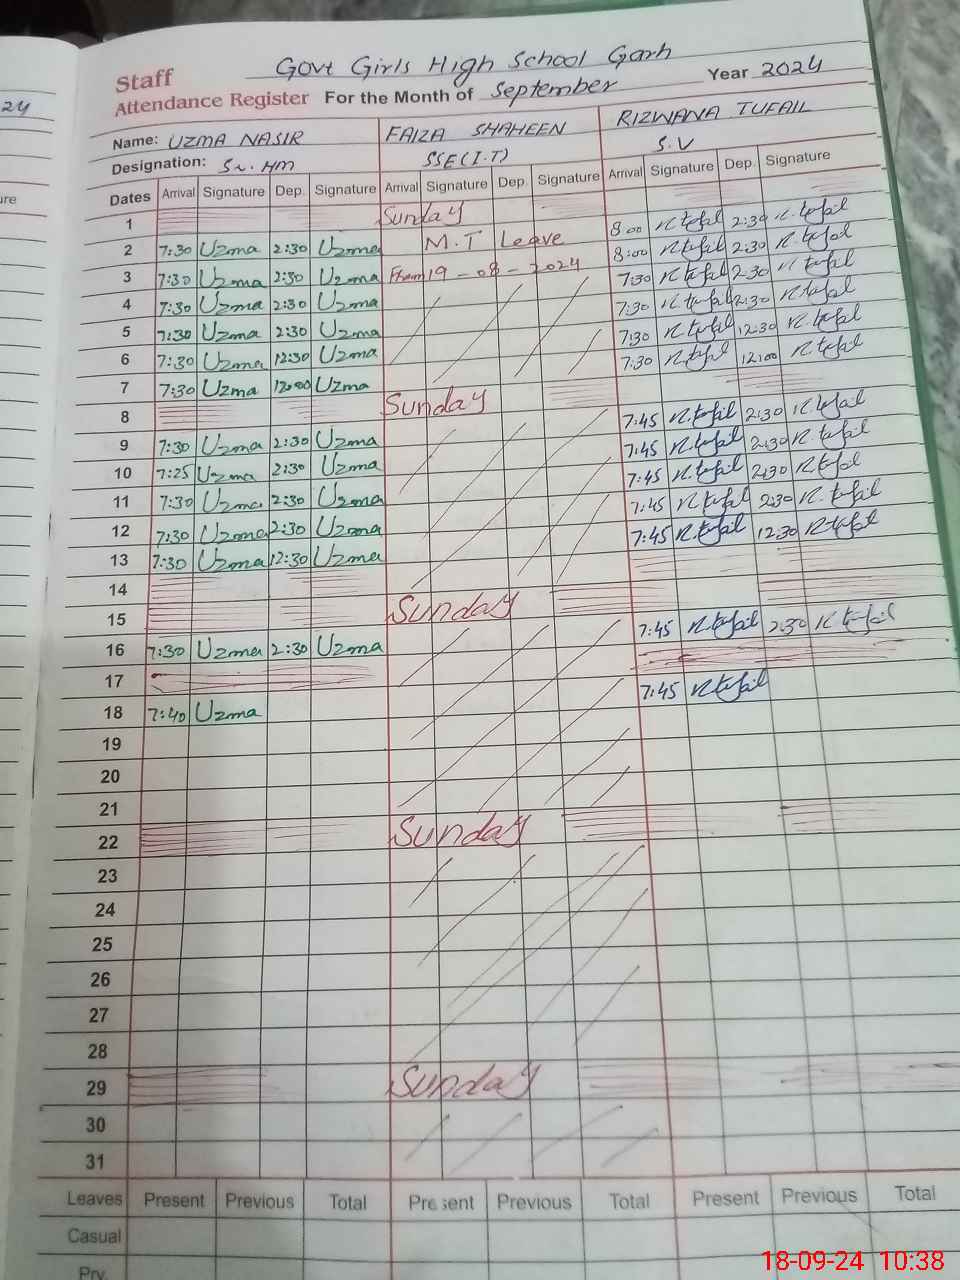 24
Govt Girls High School Garh
Staff
Attendance Register For the Month of September Year 2024
Name: UZMA NASIR FAIZA SHAHEEN RIZWANA TUFAIL
Designation: Sr. HM SSE (I.T) S.V
Dates Arrival Signature Dep. Signature Arrival Signature Dep. Signature Arrival Signature Dep. Signature
1 Sunday
2 7:30 Uzma 2:30 Uzma M.T Leave 8:00 R tufail 2:30 R. tufail
3 7:30 Uzma 2:30 Uzma From 19-08-2024 8:00 R tufail 2:30 R. tufail
4 7:30 Uzma 2:30 Uzma 7:30 R tufail 2:30 R tufail
5 7:30 Uzma 2:30 Uzma 7:30 R tufail 2:30 R tufail
6 7:30 Uzma 12:30 Uzma 7:30 R tufail 12:30 R. tufail
7 7:30 Uzma 12:00 Uzma 7:30 R tufail 12:00 R tufail
8 Sunday
9 7:30 Uzma 2:30 Uzma 7:45 R. tufail 2:30 R tufail
10 7:25 Uzma 2:30 Uzma 7:45 R. tufail 2:30 R tufail
11 7:30 Uzma 2:30 Uzma 7:45 R tufail 2:30 R tufail
12 7:30 Uzma 2:30 Uzma 7:45 R tufail 2:30 R. tufail
13 7:30 Uzma 12:30 Uzma 7:45 R. tufail 12:30 R tufail
14
15 Sunday
16 7:30 Uzma 2:30 Uzma 7:45 R. tufail 2:30 R tufail
17
18 7:40 Uzma 7:45 R tufail
19
20
21
22 Sunday
23
24
25
26
27
28
29 Sunday
30
31
Leaves Present Previous Total Present Previous Total Present Previous Total
Casual
Prv.
18-09-24 10:38